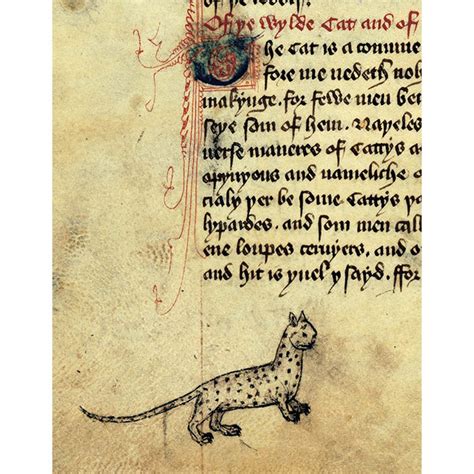 of ye
Of ye wylde Cat and of
The Cat is a comune
fore me nedeth not
makynge. for fewe men bet
seye som of hem. Nayeles
verse maneres of Cattys
opynyous and nameliche
cialy yer be some Cattys
lypardes. and som men call
ene loupes ceruyers. and o
and hit is yuel y sayd. ffor